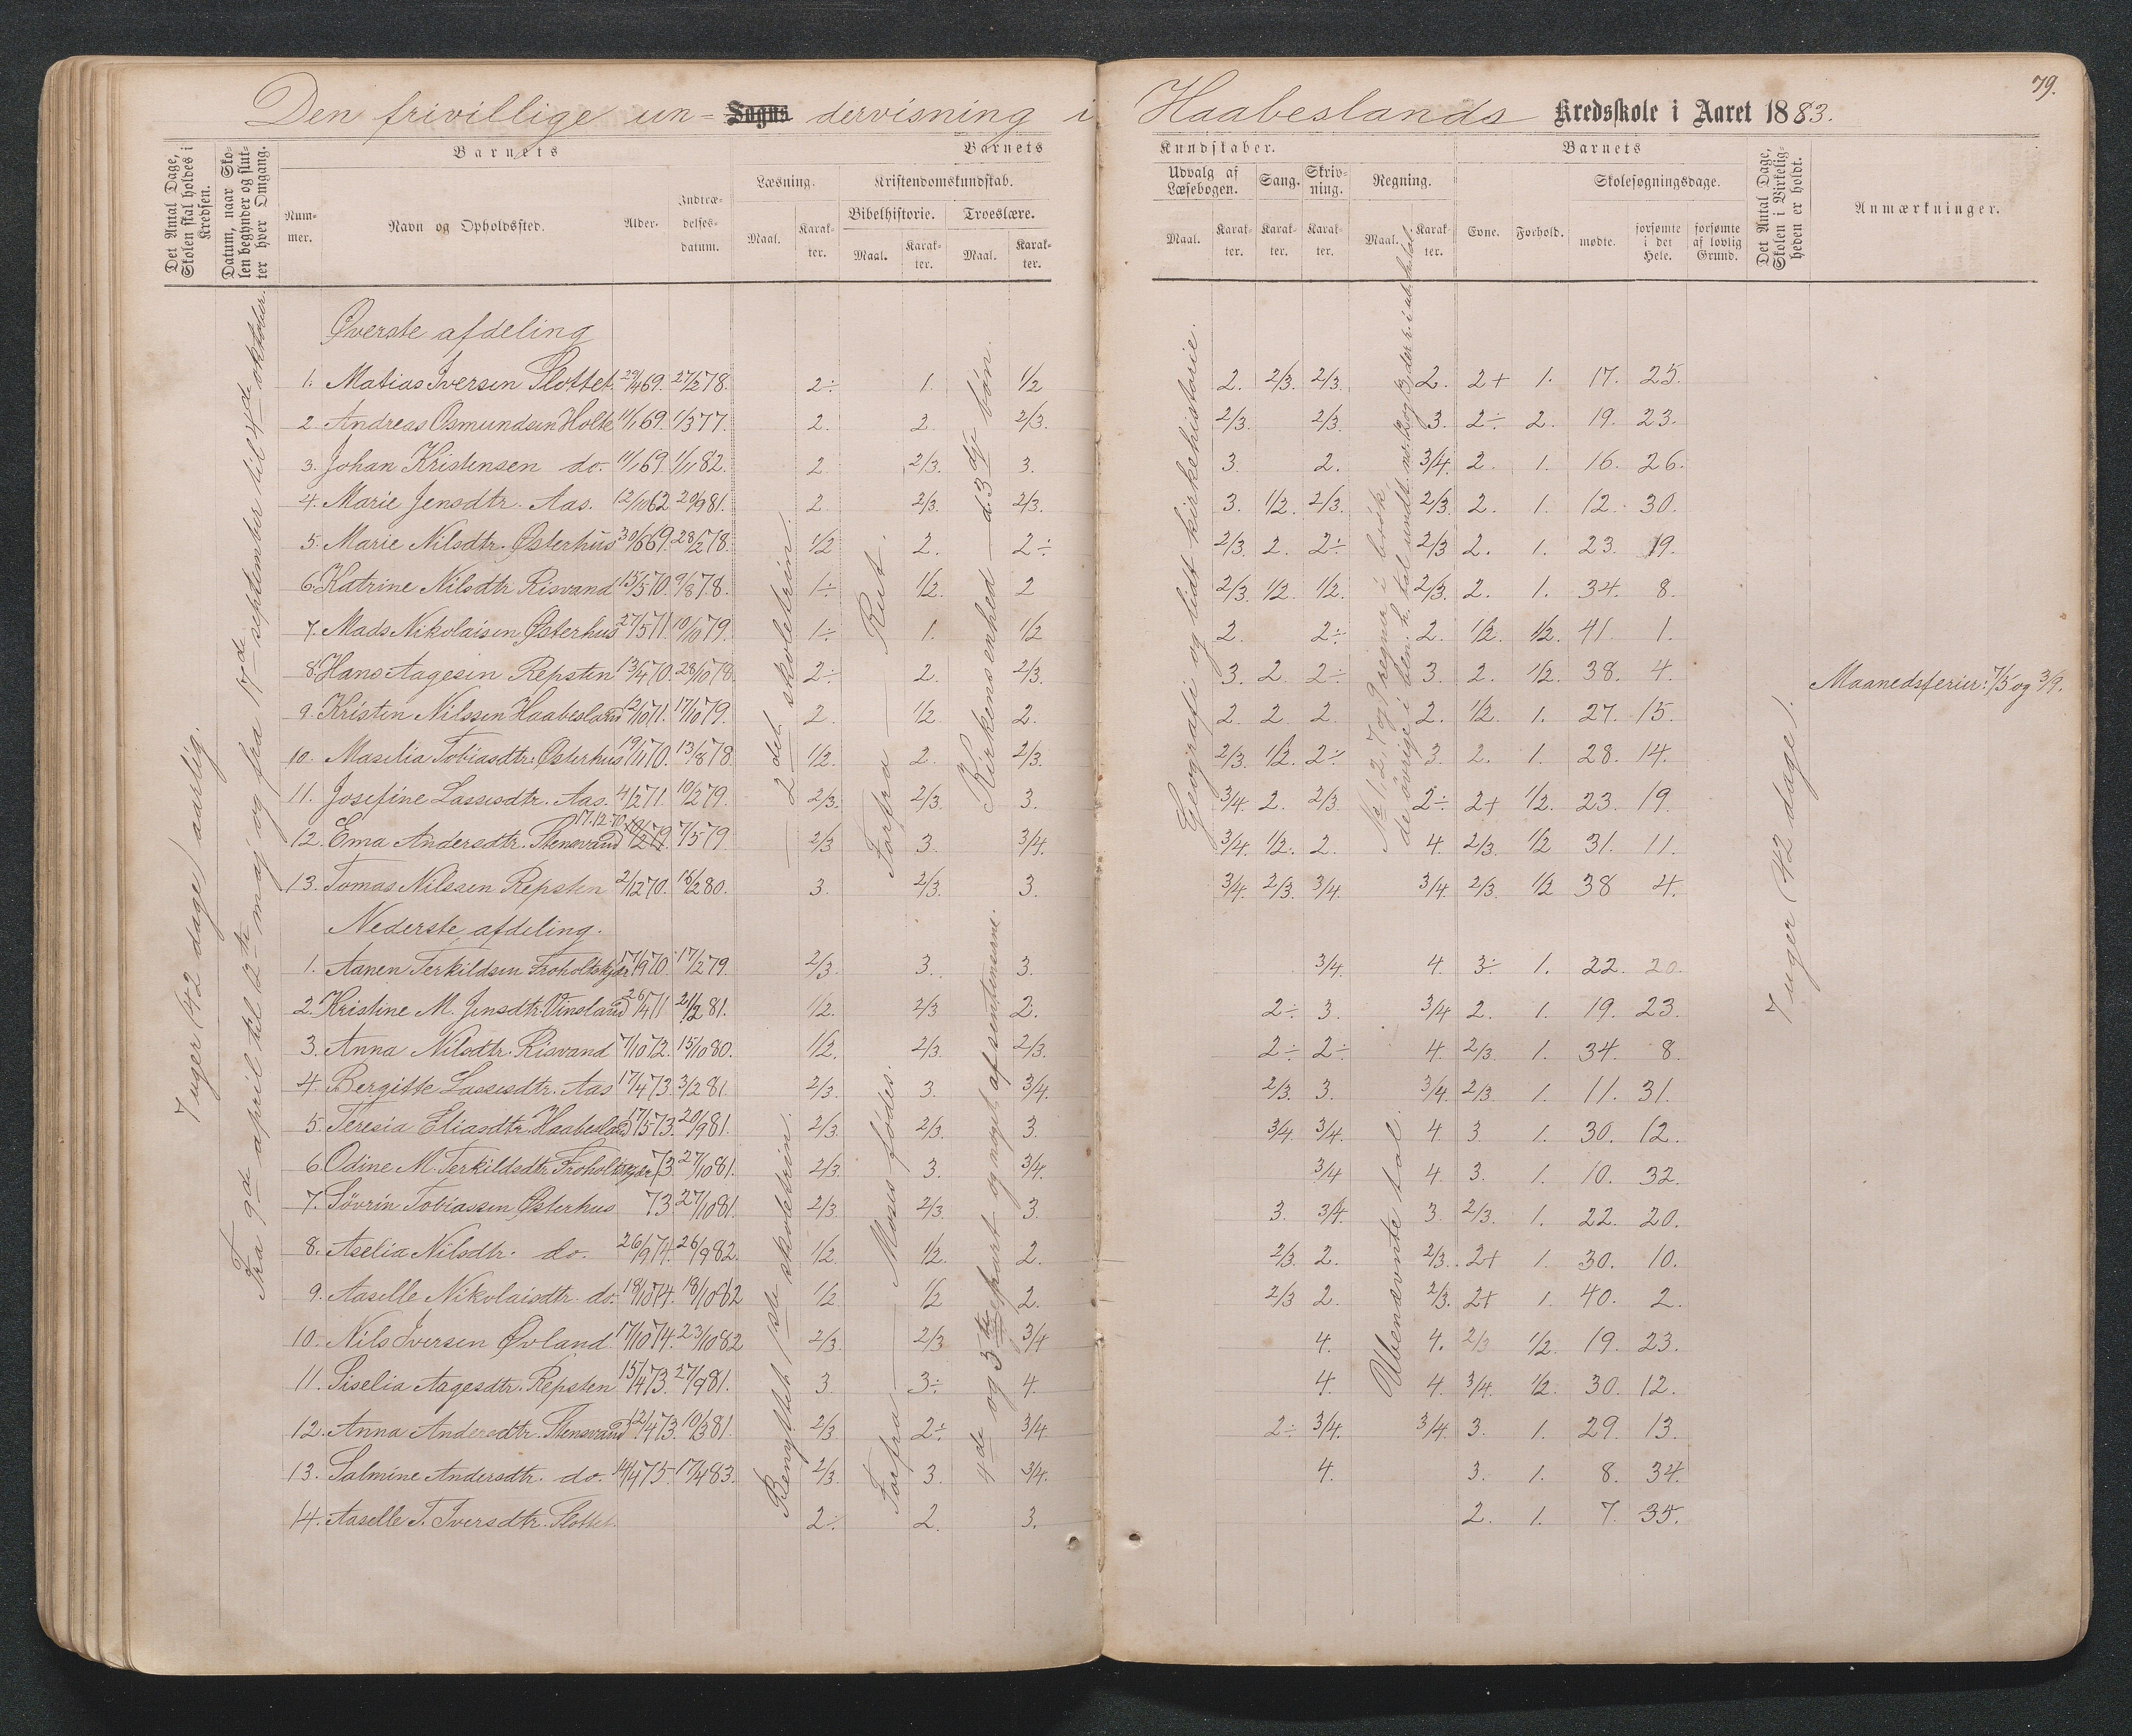 79.
Den frivillige un- Sogns dervisning i Haabeslands Kredsskole i Aaret 1883.
Det Antal Dage, Skolen skal holdes i Kredsen.
Datum, naar Skolen begynder og slutter hver Omgang.
Barnets
Barnets
Kundskaber.
Barnets
Det Antal Dage, Skolen i Virkeligheden er holdt.
Anmærkninger.
Nummer.
Navn og Opholdssted.
Alder.
Indtrædelsesdatum.
Læsning.
Kristendomskundskab.
Udvalg af Læsebogen.
Sang.
Skrivning.
Regning.
Evne.
Forhold.
Skolesøgningsdage.
Bibelhistorie.
Troeslære.
mødte.
forsømte i det Hele.
forsømte af lovlig Grund.
Maal.
Karakter.
Maal.
Karakter.
Maal.
Karakter.
Maal.
Karakter.
Karakter.
Karakter.
Maal.
Karakter.
7 uger (42 dage) aarlig.
Fra 9de april til 12te maj og fra 17de september til 4de oktober.
2det skoletrin.
Forfra — Rut.
Kirkens enhed — d. 3dje bøn.
Geografi og lidt kirkehistorie.
No 1, 2, 7 og 9 regner i brøk,
7 uger (42 dage).
Maanedsferier: 7/5 og 3/9.
Øverste afdeling
1. Matias Iversen Slottet 29/4 69. 27/2 78. 2÷ 1. 1/2 2. 2/3. 2/3. 2. 2+ 1. 17. 25.
2 Andreas Osmundsen Holte 11/1 69. 1/3 77. 2. 2. 2/3. 2/3. 2/3. 3. 2÷ 2. 19. 23.
3. Johan Kristensen do. 11/1 69. 1/11 82. 2. 2/3. 3. 3. 2. 3/4. 2. 1. 16. 26.
4. Marie Jensdtr. Aas. 12/10 62 20/9 81. 2. 2/3. 2/3. 3. 1/2. 2/3. 2/3. 2. 1. 12. 30.
5. Marie Nilsdtr. Østerhus 30/6 69. 28/2 78. 1/2 2. 2÷ 2/3. 2. 2÷ 2/3 2. 1. 23. 19.
6. Katrine Nilsdtr Risvand 15/5 70. 9/8 78. 1÷ 1/2. 2 2/3. 1/2. 1/2. 2/3. 2. 1. 34. 8.
7. Mads Nikolaisen Østerhus 27/5 71. 10/10 79. 1÷ 1. 1/2 2. 2÷ 2. 1/2. 1/2. 41. 1.
8. Hans Aagesen Repsten 13/4 70. 28/10 78. 2÷ 2. 2/3. 3. 2. 2÷ 3. 2. 1/2. 38. 4.
9. Kristen Nilssen Haabesland 12/10 71. 17/10 79. 2. 1/2. 2. 2. 2. 2. 2. 1/2. 1. 27. 15.
10. Maselia Tobiasdtr. Østerhus 19/11 70. 13/8 78. 1/2. 2. 2/3. 2/3. 1/2. 2÷ 3. 2. 1. 28. 14.
11. Josefine Lassesdtr. Aas. 4/2 71. 10/2 79. 2/3. 2/3. 3. 3/4. 2. 2/3 2÷ 2+ 1/2. 23. 19.
17.12.70.
12. Ema Andersdtr. Stensvand 7/5 79 2/3 3. 3/4. 3/4. 1/2. 2. 4. 2/3. 1/2 31. 11.
13. Tomas Nilssen Repsten 2/12 70. 16/2 80. 3. 2/3. 3. 3/4. 2/3. 3/4. 3/4. 2/3. 1/2 38 4.
Nederste afdeling.
Benyttet 1ste skoletrin.
Forfra — Moses fødes.
4de og 5te part og noget af sentenserne.
Ubenævnte tal.
1. Aanen Terkildsen Froholtskjær 17/9 70. 17/2 79. 2/3. 3. 3. 3/4. 4. 3÷ 1. 22. 20.
2. Kristine M. Jensdtr. Vinsland 26/4 71 21/2 81. 1/2. 2/3 2. 2÷ 3. 3/4 2. 1. 19. 23.
3. Anna Nilsdtr. Risvand 7/10 72. 15/10 80. 1/2. 2/3. 2/3. 2÷ 2÷ 4. 2/3. 1. 34. 8.
4 Bergitte Lassesdtr. Aas 17/4 73. 3/2 81. 2/3. 3. 3/4. 2/3. 3. 3/4. 2/3. 1. 11. 31.
5. Teresia Eliasdtr. Haabesland 17/5 73. 20/9 81. 2/3. 2/3. 3. 3/4. 3/4. 4. 3 1. 30. 12.
6. Odine M. Terkildsdtr Froholtskjær 73. 27/10 81. 2/3. 3. 3/4. 3/4 4. 3. 1. 10. 32.
7. Sövrin Tobiassen Østerhus 73. 27/10 81. 2/3. 2/3. 3. 3. 3/4. 3. 2/3. 1. 22. 20.
8. Aselia Nilsdtr. do. 26/9 74. 26/9 82. 1/2. 1/2. 2. 2/3. 2. 2/3. 2+ 1. 30. 10.
9. Aaselle Nikolaisdtr. do. 18/10 74. 18/10 82 1/2. 1/2 2. 2/3 2. 2/3. 2+ 1. 40. 2.
10. Nils Iversen Øvland 17/10 74. 23/10 82 2/3. 2/3 3/4 4. 4. 2/3 1/2. 19. 23.
11. Siselia Aagesdtr. Repsten 15/4 73. 27/9 81. 3. 3÷ 4. 4. 4. 3/4. 1/2. 30. 12.
12. Anna Andersdtr. Stensvand 12/4 73. 10/3 81. 2/3. 2÷ 3/4. 2÷ 3/4. 3/4. 3. 1. 29. 13.
13. Salmine Andersdtr. do. 14/4 75. 17/4 83. 2/3. 3. 3/4. 4. 3. 1. 8. 34.
14. Aaselle T. Iversdtr. Slottet. 2÷ 2. 3. 2. 1. 7. 35.